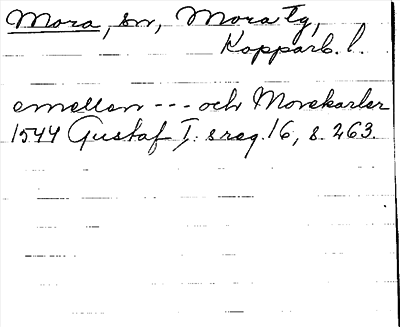 Mora, sn, Mora tg,
Kopparb. l.
emellan --- och Morekarlar
1544 Gustaf I: s reg. 16, s. 263.